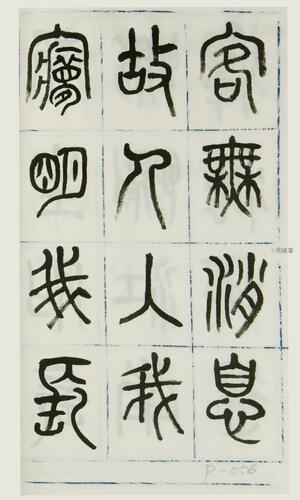 客無消息
故人入我
夢明我長
P-056